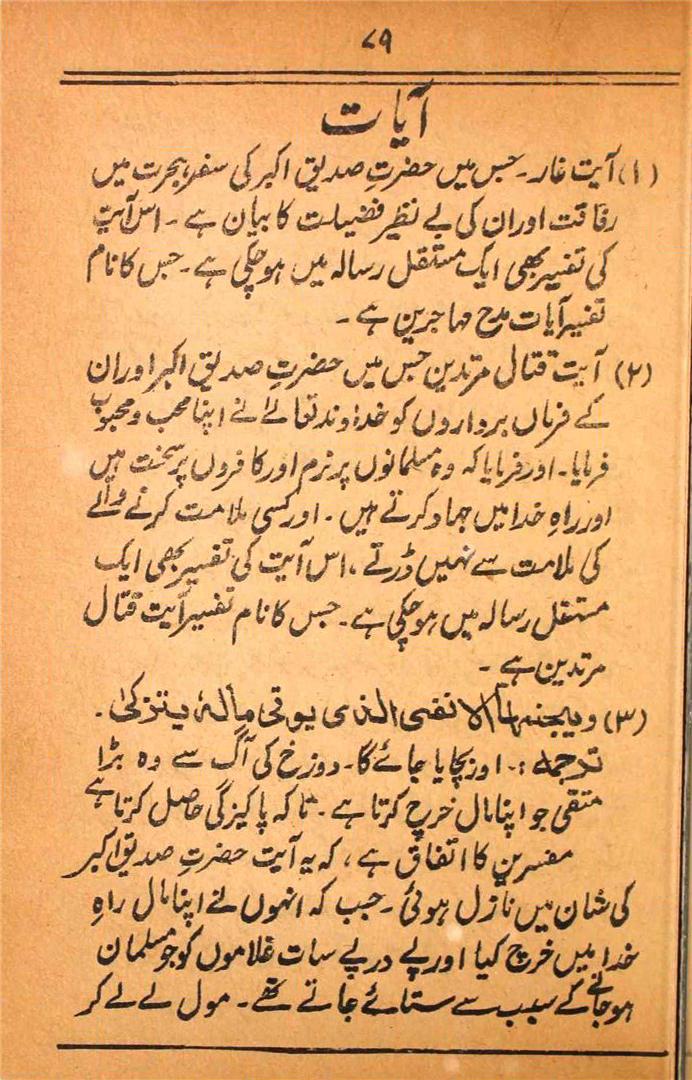 ۷۹
آیات
(۱) آیت غار۔ جس میں حضرتِ صدیق اکبر کی سفر ہجرت میں
رفاقت اور ان کی بے نظیر فضیلت کا بیان ہے۔ اس آیت
کی تفسیر بھی ایک مستقل رسالہ میں ہو چکی ہے۔ جس کا نام
تفسیر آیات مدح مہاجرین ہے۔
(۲) آیت قتال مرتدین جس میں حضرتِ صدیق اکبر اور ان
کے فرماں برواروں کو خداوند تعالےٰ نے اپنا محب و محبوب
فرمایا۔ اور فرمایا کہ وہ مسلمانوں پر نرم اور کافروں پر سخت ہیں
اور راہِ خدا میں جہاد کرتے ہیں۔ اور کسی ملامت کرنے والے
کی ملامت سے نہیں ڈرتے، اس آیت کی تفسیر بھی ایک
مستقل رسالہ میں ہو چکی ہے۔ جس کا نام تفسیر آیت قتال
مرتدین ہے۔
(۳) ویجنبہا الاتقی الذی یوتی مالہٗ یتزکیٰ۔
ترجمہ:۔ اور بچایا جائے گا۔ دوزخ کی آگ سے وہ بڑا
متقی جو اپنا مال خرچ کرتا ہے۔ تاکہ پاکیزگی حاصل کرتا ہے
مفسرین کا اتفاق ہے، کہ یہ آیت حضرتِ صدیق اکبر
کی شان میں نازل ہوئی۔ جب کہ انہوں نے اپنا مال راہِ
خدا میں خرچ کیا اور پے در پے سات غلاموں کو جو مسلمان
ہو جانے کے سبب سے ستائے جاتے تھے۔ مول لے لے کر